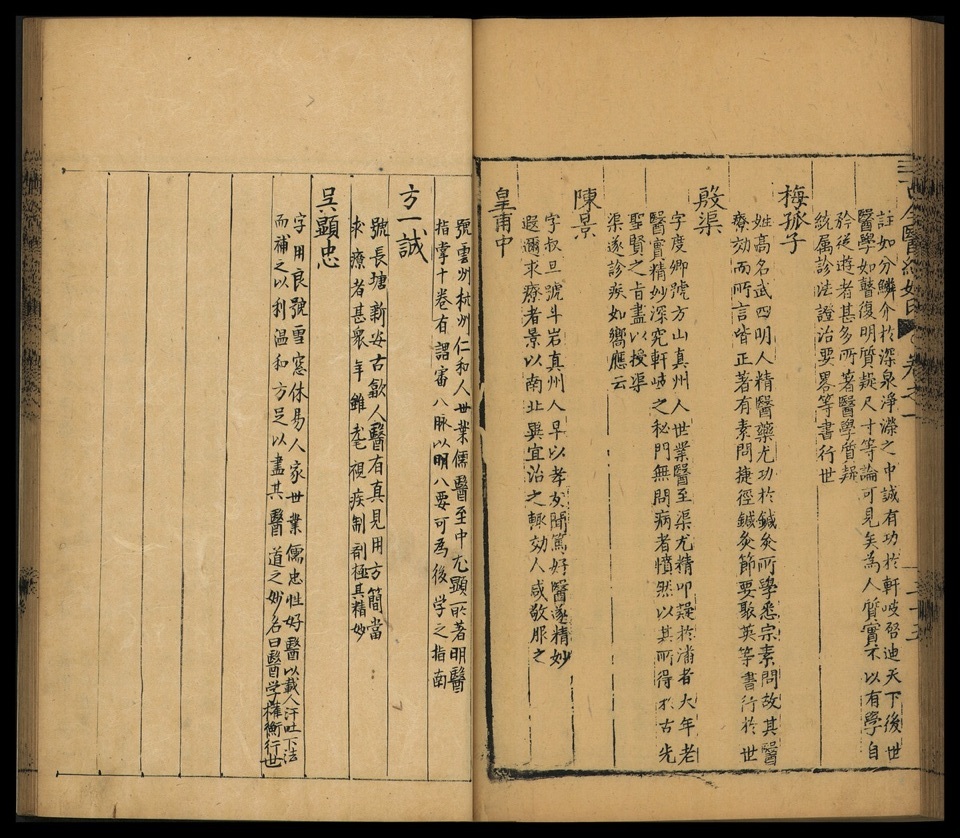 註如分鱗介於深泉淨瀠之中誠有功於軒岐啓迪天下後世
醫學如聾復明質疑尺寸等論可見矣為人質實不以有學自
矜從遊者甚多所著醫學質疑
統屬診法證治要畧等書行世
梅孤子
姓高名武四明人精醫藥尤功於鍼灸所學悉宗素問故其醫
療効而所言皆正著有素問捷徑鍼灸節要聚英等書行於世
殷渠
字度卿號方山真州人世業醫至渠尤精叩疑於浦者大年老
醫實精妙深究軒岐之秘門無問病者憤然以其所得於古先
聖賢之旨盡以授渠
渠遂診疾如嚮應云
陳景
字叔旦號斗岩真州人早以孝友聞篤好醫遂精妙
遐邇求療者景以南北異宜治之輒効人咸敬服之
皇甫中
號雲洲杭州仁和人世業儒醫至中尤顯所著明醫
指掌十卷有謂審八脉以明八要可為後學之指南
方一誠
號長塘新安古歙人醫有真見用方簡當
求療者甚衆年雖耄視疾制劑極其精妙
吳顯忠
字用良號雪窓休易人家世業儒忠性好醫以戴人汗吐下法
而補之以利溫和方足以盡其醫道之妙名曰醫學權衡行世